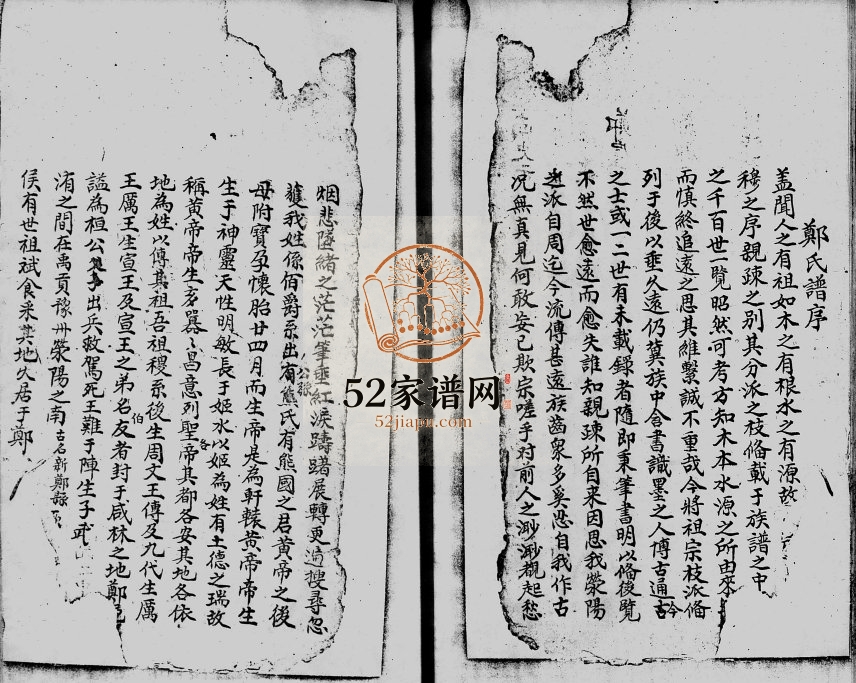 鄭氏譜序
盖聞人之有祖如木之有根水之有源故
穆之序親疎之别其分派之枝俻載于族譜之中
之千百世一覽昭然可考方知木本水源之所由來
而慎終追遠之思其維繫誠不重哉今將祖宗枝派俻
列于後以垂久遠仍冀族中合書識墨之人博古通古今
之士或一二世有未載録者隨即秉筆書明以俻後覽
不然世愈遠而愈失誰知親疎所自来因思我滎陽
派自周迄今流傳甚遠族齒衆多奚恐自我作古
况無真見何敢妄已欺宗嗟乎对前人之渺渺覩起愁
烟悲墜緒之茫茫筆垂紅淚躊躇展轉更搜尋忽
獲我姓係伯爵系出有熊氏有熊國之君黄帝之後
公孫
母附寶孕懷胎廿四月而生帝是為軒轅黄帝帝生
生于神靈天性明敏長于姬水以姬為姓有土德之瑞故
稱黄帝帝生玄囂昌意列聖帝其都各安其地各依
各
地為姓以傳其祖吾祖稷系後生周文王傳及九代生厲
王厲王生宣王及宣王之弟名友者封于咸林之地鄭
伯
謚為桓公出兵救駕死王難于陣生子武
洧之間在禹貢豫州滎陽之南古名新鄭
侯有世祖斌食采其地久居于鄭
52家谱网
52jiapu.com